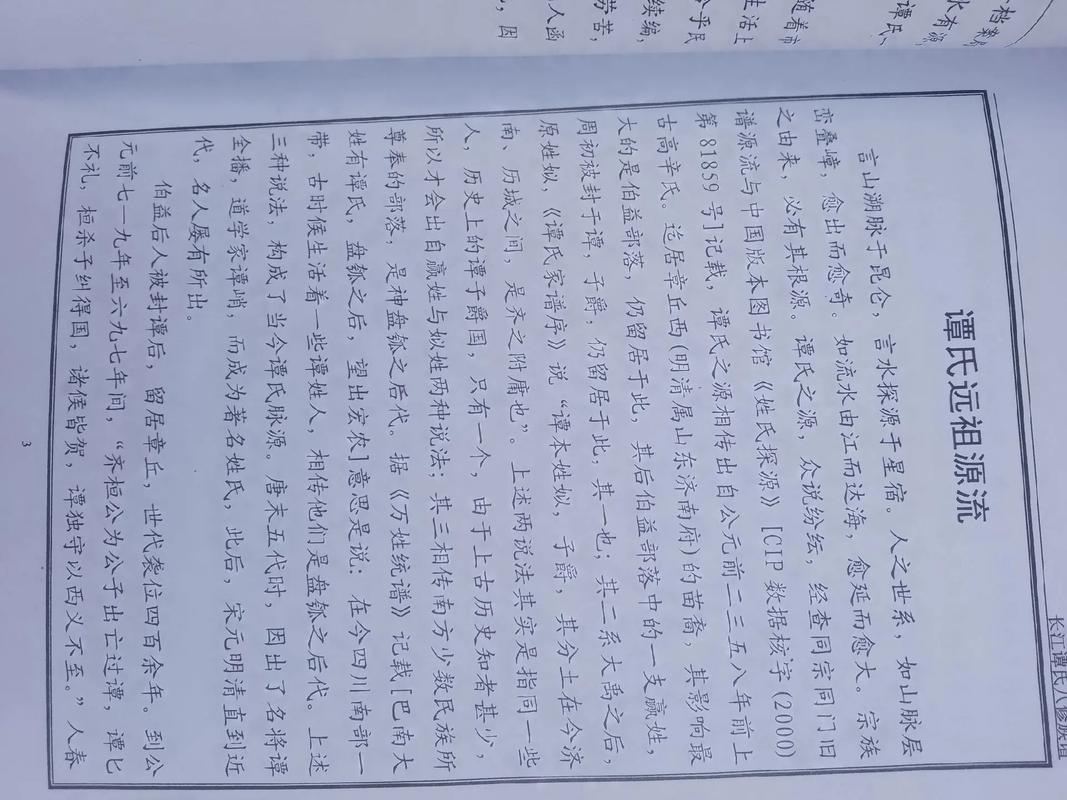 长江谭氏八修族谱
谭氏远祖源流
言山溯脉于昆仑，言水探源于星宿。人之世系，如山脉层
峦叠嶂，愈出而愈奇。如流水由江而达海，愈延而愈大。宗族
之由来，必有其根源。谭氏之源，众说纷纭，经查同宗同门旧
谱源流与中国版本图书馆《姓氏探源》[CIP 数据核字(2000)
第 81859 号]记载，谭氏之源相传出自公元前二三五八年前上
古高辛氏。迄居章丘西(明清属山东济南府)的苗裔，其影响最
大的是伯益部落，仍留居于此，其后伯益部落中的一支嬴姓，
周初被封于谭，子爵，仍留居于此，其一也；其二系大禹之后，
原姓姒，《谭氏家谱序》说“谭本姓姒，子爵，其分土在今济
南、历城之间，是齐之附庸也”。上述两说法其实是指同一些
人，历史上的谭子爵国，只有一个，由于上古历史知者甚少，
所以才会出自嬴姓与姒姓两种说法；其三相传南方少数民族所
尊奉的部落，是神盘瓠之后代。据《万姓统谱》记载[巴南大
姓有谭氏，盘瓠之后，望出宏农]意思是说：在今四川南部一
带，古时候生活着一些谭姓人，相传他们是盘瓠之后代。上述
三种说法，构成了当今谭氏脉源。唐末五代时，因出了名将谭
全播，道学家谭峭，而成为著名姓氏，此后，宋元明清直到近
代，名人屡有所出。
伯益后人被封谭后，留居章丘，世代袭位四百余年。到公
元前七一九年至六九七年间，“齐桓公为公子出亡过谭，谭匕
不礼，桓杀子纠得国，诸侯皆贺，谭独守以西义不至。”人春
3
水有源，
谭氏，
随着市
生活上
今乎民
续编，
劳苦，
人函
，因